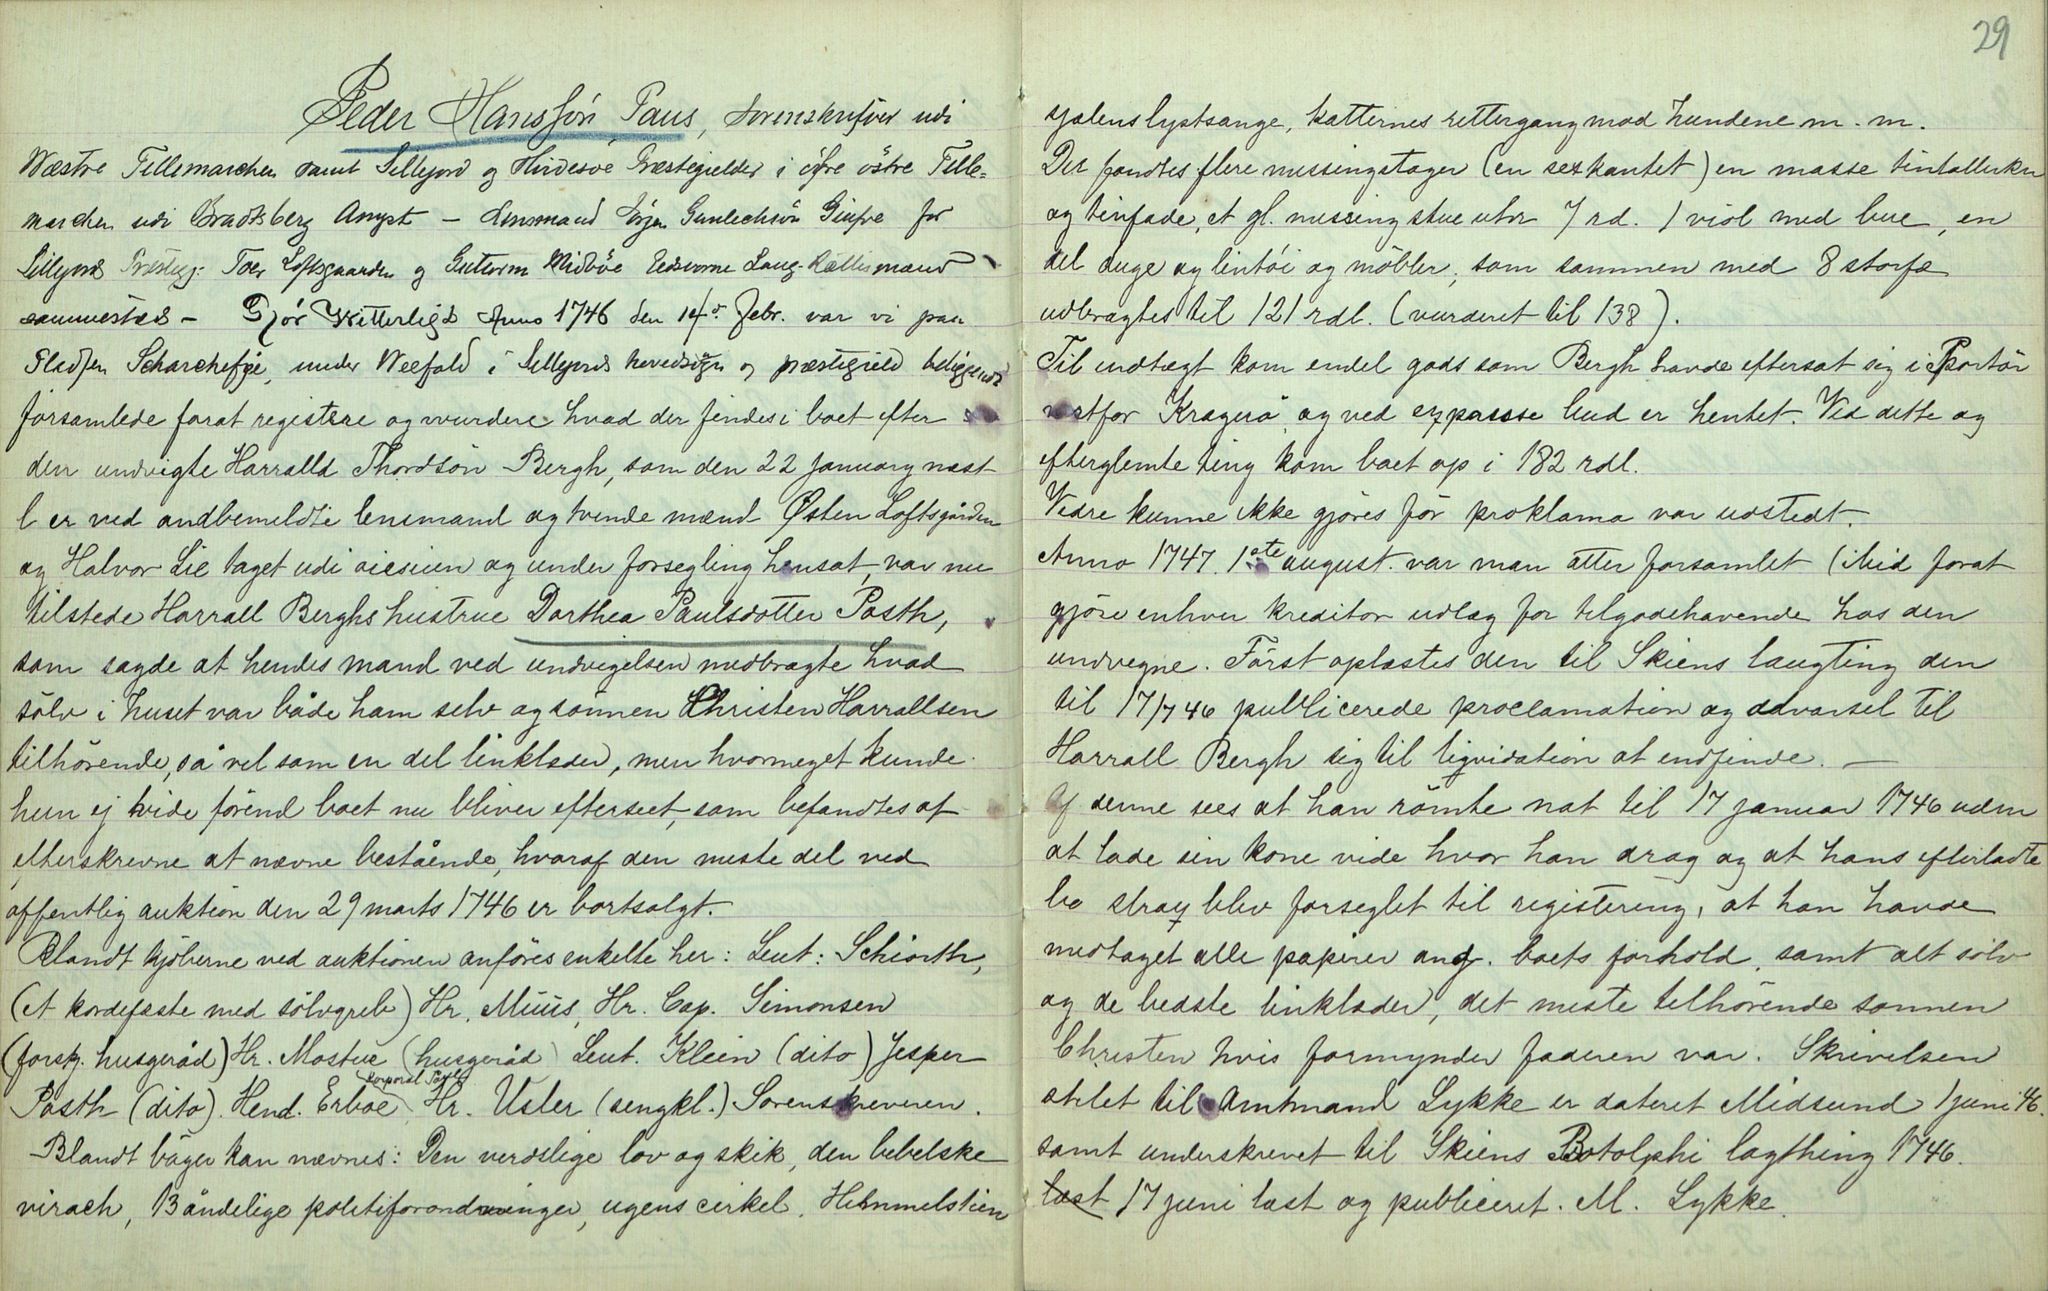 Peder Hansson Paus, Sorenskriver udi
Westre Tellemarchen samt Sillejord og Hvidesøe Præstegielder i øfre östre Telle=
marchen udi Bradtsberg Ampt — Lensmand Gunlechsön for
Sillejord Præsteg: Toer Loftsgaarden og Gutorm Midböe Edsvorne Laug-Rættismænd
sammesteds — Gjör Witterligt Anno 1746 den 14de Febr. var vi paa
Pladsen Scharchefje, under Weefald i Sillejords hovedsogn og præstegield beliggende
forsamlede forat registere og wurdere hvad der findes i boet efter
den undvigte Harralld Thordsön Bergh, som den 22 January næst
l er ved andbemeldte lensmand og tvende mænd Østen Loftsgården
og Halvor Lie taget udi og under forsegling hensat, var nu
tilstede Harrall Berghs hustrue Dorthea Paulsdotter Posth,
som sagde at hendes mand ved undvigelsen medbragte hvad
sölv i huset var både ham selv og sönnen Christen Harrallsen
tilhörende, så vel som en del linklæder, men hvormeget kunde
hun ej vide förend boet nu bliver efterseet, som befandtes af
efterskrevne at nævne bestående, hvoraf den meste del ved
offentlig auktion den 29 marts 1746 er bortsolgt.
Blandt kjöberne ved auktionen anföres enkelte her: Leut: Schiorth,
(et kordefæste med sölvgreb) Hr. Müüs, Hr. Cap. Simonsen
(forskj. husgeråd) Hr. Mostue (husgeråd) Leut. Klein (dito) Jesper
korporal Posth
Posth (dito). Hend. Erboe, Hr. Usler (sengkl.) Sorenskreveren.
Blandt böger kan nævnes: Den verdslige lov og skik, den bebelske
virach, 13 åndelige politiforordninger, ugens cirkel, Himmelstien
29
lystsange, katternes rettergang mod hundene m. m.
Der fandtes flere messingstager (en sexkantet) en masse tintallerkn
og tinfade, et gl. messing stueuhr 7 rd. 1 viol med bue, en
del duge og lintöi og möbler, som sammen med 8 storfæ
udbragtes til 121 rdl. (vurderet til 138).
Til indtægt kom endel gods som Bergh havde eftersat sig i Portör
vestfor Kragerö, og ved expresse bud er hentet. Ved dette og
efterglemte ting kom boet op i 182 rdl.
Vidre kunne ikke gjöres för proklama var udstedt.
Anno 1747. 1ste august. var man atter forsamlet i Mid forat
gjöre enhver kreditor udlæg for tilgodehavende hos den
undvegne. Först oplæstes den til Skiens laugting den
til 17/7 46 publicerede proclamation og advarsel til
Harrall Bergh sig til liqvidation at indfinde. —
Af denne sees at han römte nat til 17 januar 1746 uden
at lade sin kone vide hvor han drog og at hans efterladte
bo strax blev forseglet til registering, at han havde
medtaget alle papirer ang. boets forhold, samt alt sölv
og de bedste linklæder, det meste tilhörende sönnen
Christen hvis formynder faderen var. Skrivelsen
stilet til Amtmand Lykke er dateret Midsund 1 juni 46.
samt underskrevet til Skiens Botolphi lagthing 1746.
læst 17 juni læst og publiceret. M. Lykke.